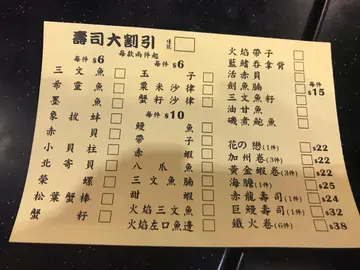 壽司大割引
每款兩件起
每件 $6
三文魚
希靈魚
墨魚
象拔蚌
赤貝
小貝柱
北寄貝
榮螺
松葉蟹棒
蟹籽
每件 $6
玉子
粟米沙律
蟹籽沙律
每件 $10
鰻魚
帶子
赤蝦
八爪魚
三文魚腩
甜蝦
火焰三文魚
火焰左口魚邊
火焰帶子
藍鰭吞拿背
活赤貝
劍魚腩
三文魚籽
油甘魚
磯煮鮑魚
每件
$15
花の戀(1件) $22
加州卷(3件) $22
黃金蝦卷(3件) $22
海膽(1件) $25
赤龍壽司(1件) $24
巨鰻壽司(1件) $32
鐵火卷(6件) $38